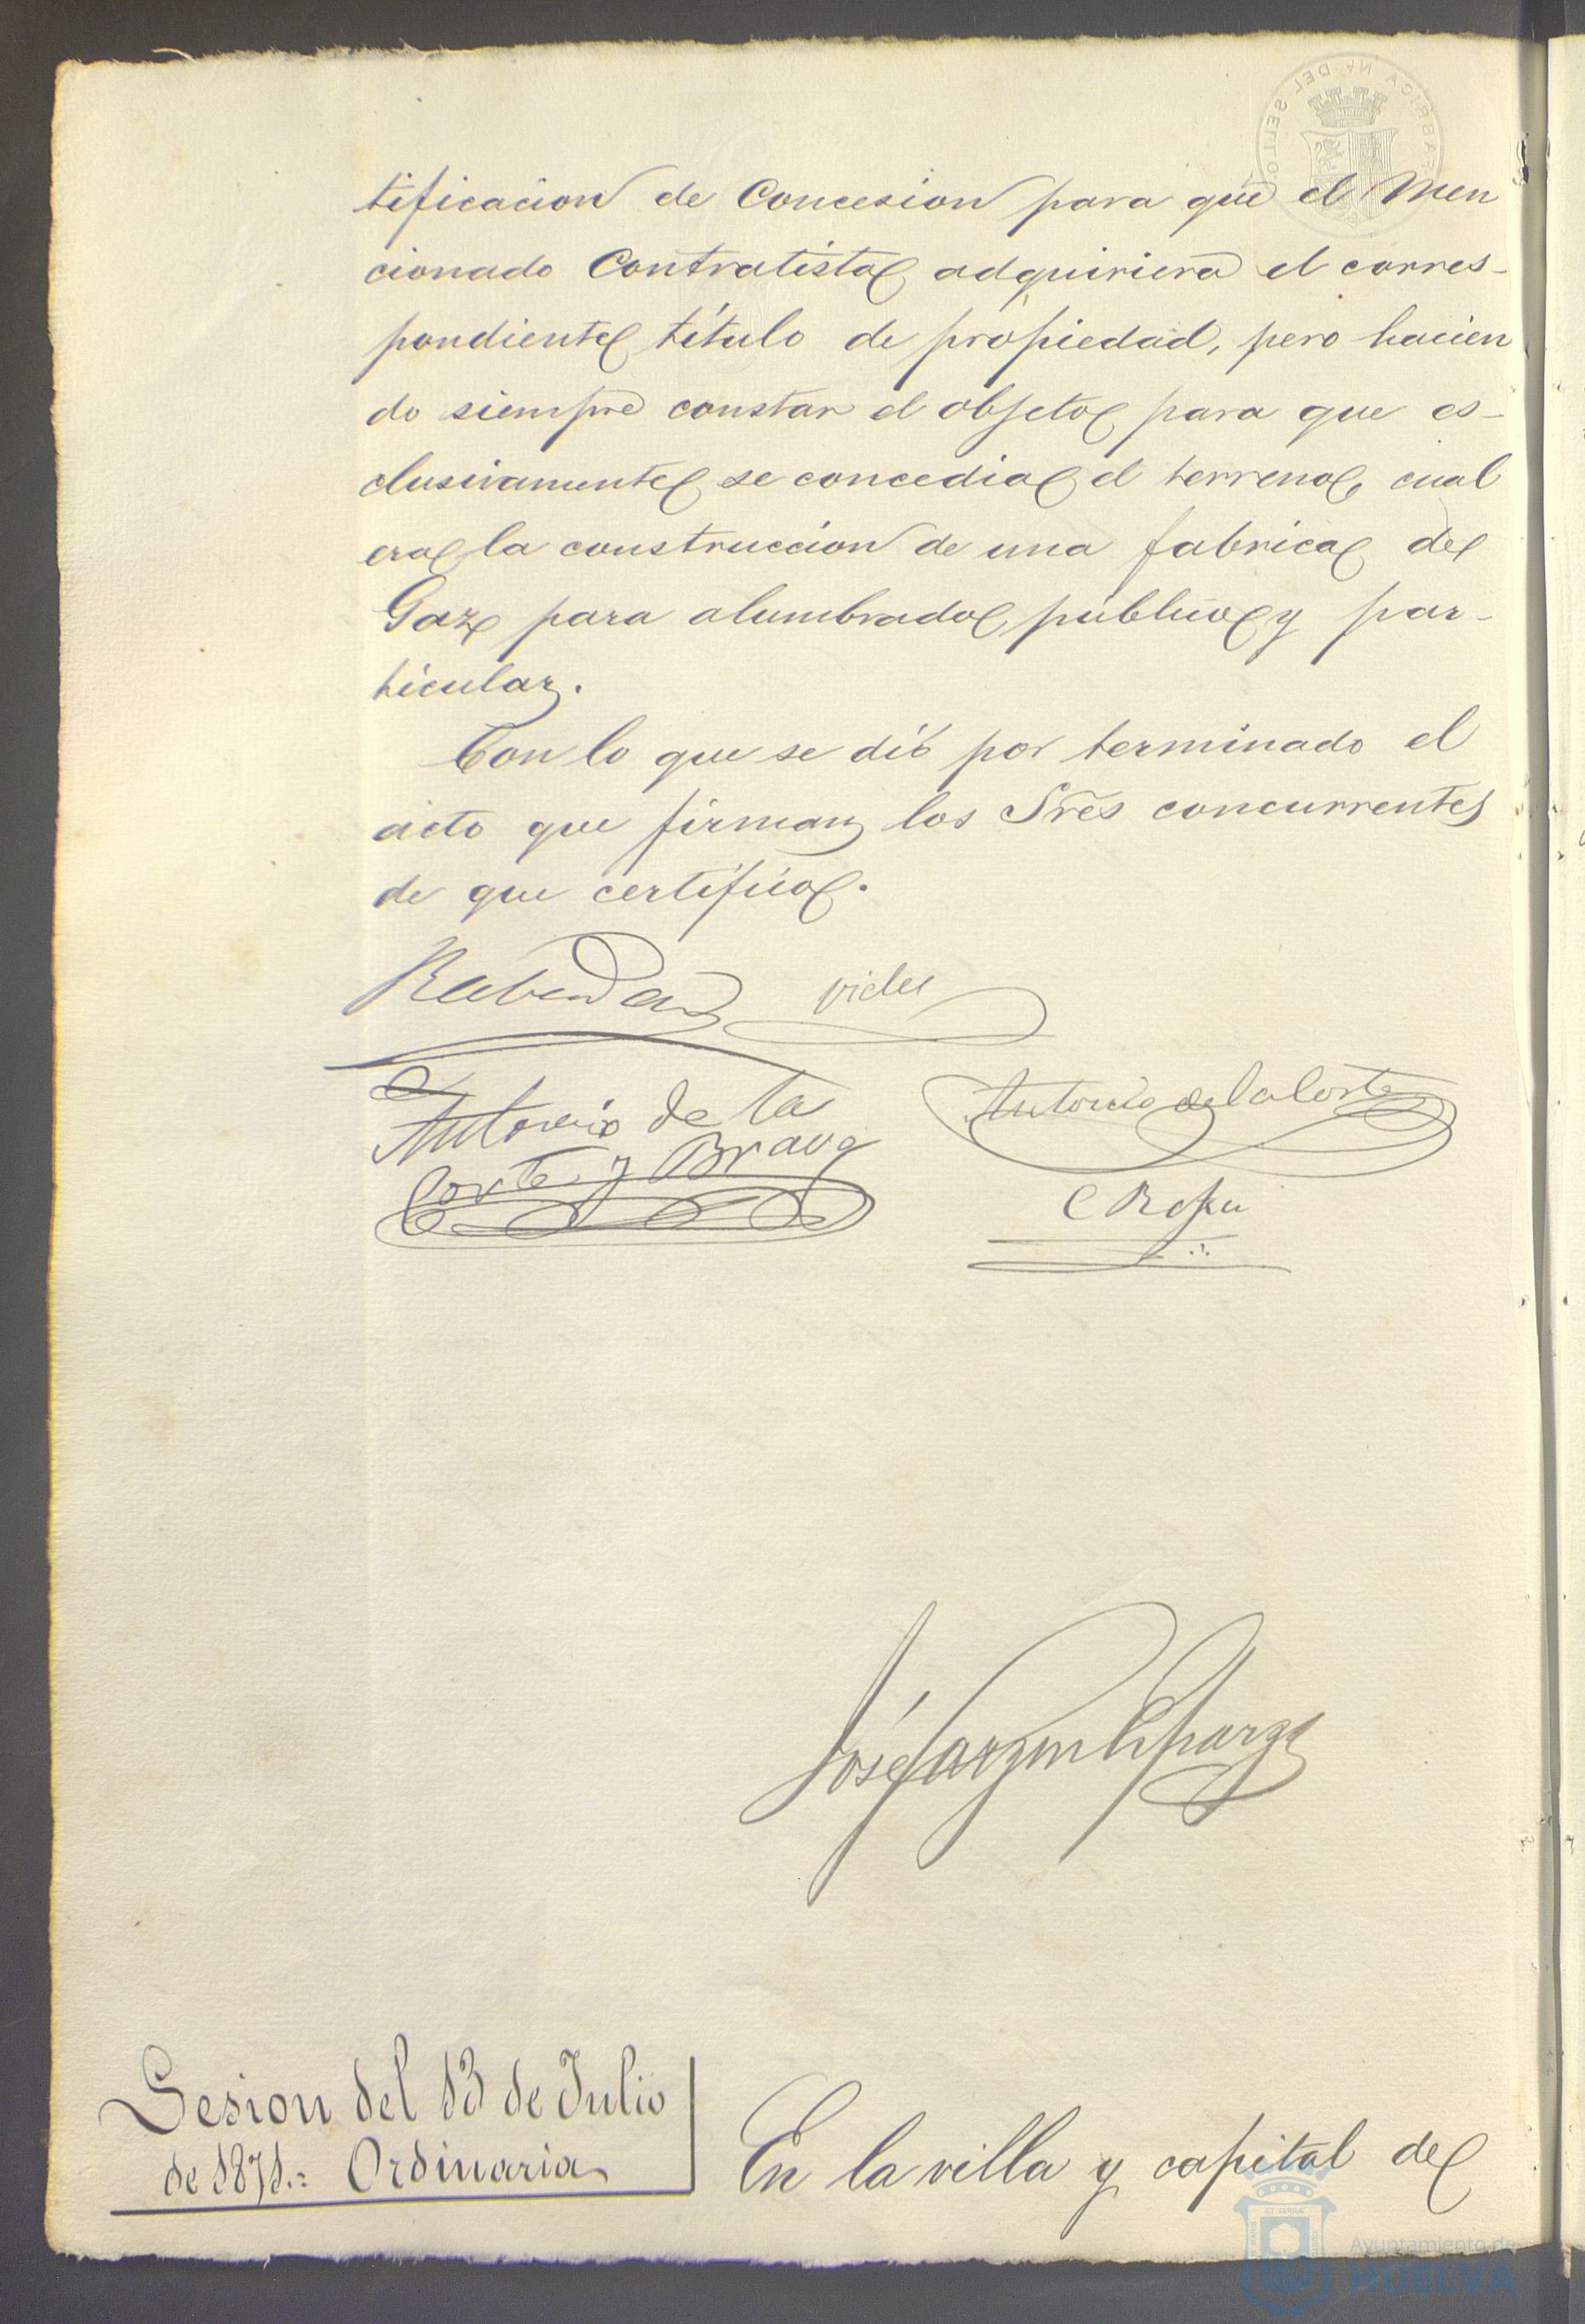 FABRICA Nl. DEL SELLO
tificacion de Concesion para que el Men
cionado Contratista adquiriera el corres-
pondiente título de propiedad, pero hacien
do siempre constar el objeto para que es-
clusivamente se concedia el terreno, cual
era la construccion de una fabrica de
Gaz para alumbrado público y par-
ticular.
Con lo que se dió por terminado el
acto que firman los Sres concurrentes
de que certifico.
Rabadan Vides
Antonio de la
Corte y Bravo
Antonio de la Corte
José Garzon
Sesion del 13 de Julio
de 1871.= Ordinaria
En la villa y capital de
Ayuntamiento de
HUELVA